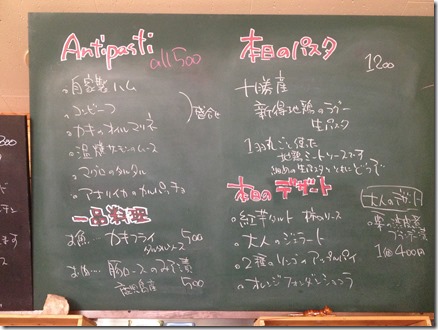 Antipasti
all 500
自家製ハム
コンビーフ
カキのオイルマリネ
温燻サーモンのムース
マグロのタルタル
アオリイカのカルパッチョ
盛合せ
一品料理
お魚…カキフライ
タルタルソース 500
お肉…豚ロースのみそ漬
500
本日のパスタ
1200
十勝産
新得地鶏のラグー
生パスタ
本日のデザート
紅芋タルト 柿のソース
大人のジェラート
2種のリンゴのアップルパイ
オレンジフォンダンショコラ
大人のデザート
栗の渋皮煮
ブランデー
1個400円